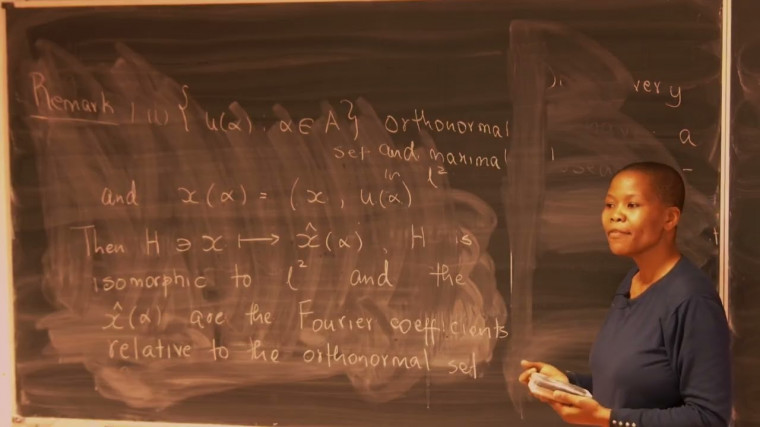 Remark (ii) { u(α) : α ∈ A } orthonormal
set and maximal
in l²
and x(α) = (x, u(α)
Then H ∋ x ⟼ x̂(α), H is
isomorphic to l² and the
x̂(α) are the Fourier coefficients
relative to the orthonormal set.
very
a